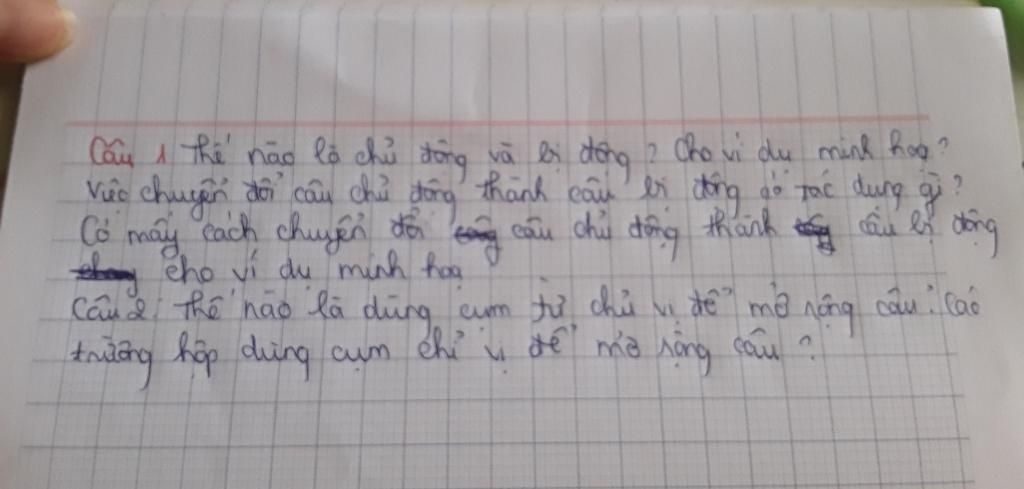 Câu 1 thế nào là chủ động và bị động? Cho ví dụ minh hoạ?
Việc chuyển đổi câu chủ động thành câu bị động có tác dụng gì?
Có mấy cách chuyển đổi câu chủ động thành câu bị động
cho ví dụ minh hoạ
Câu 2: thế nào là dùng cụm từ chủ vị để mở rộng câu? Các
trường hợp dùng cụm chủ vị để mở rộng câu?